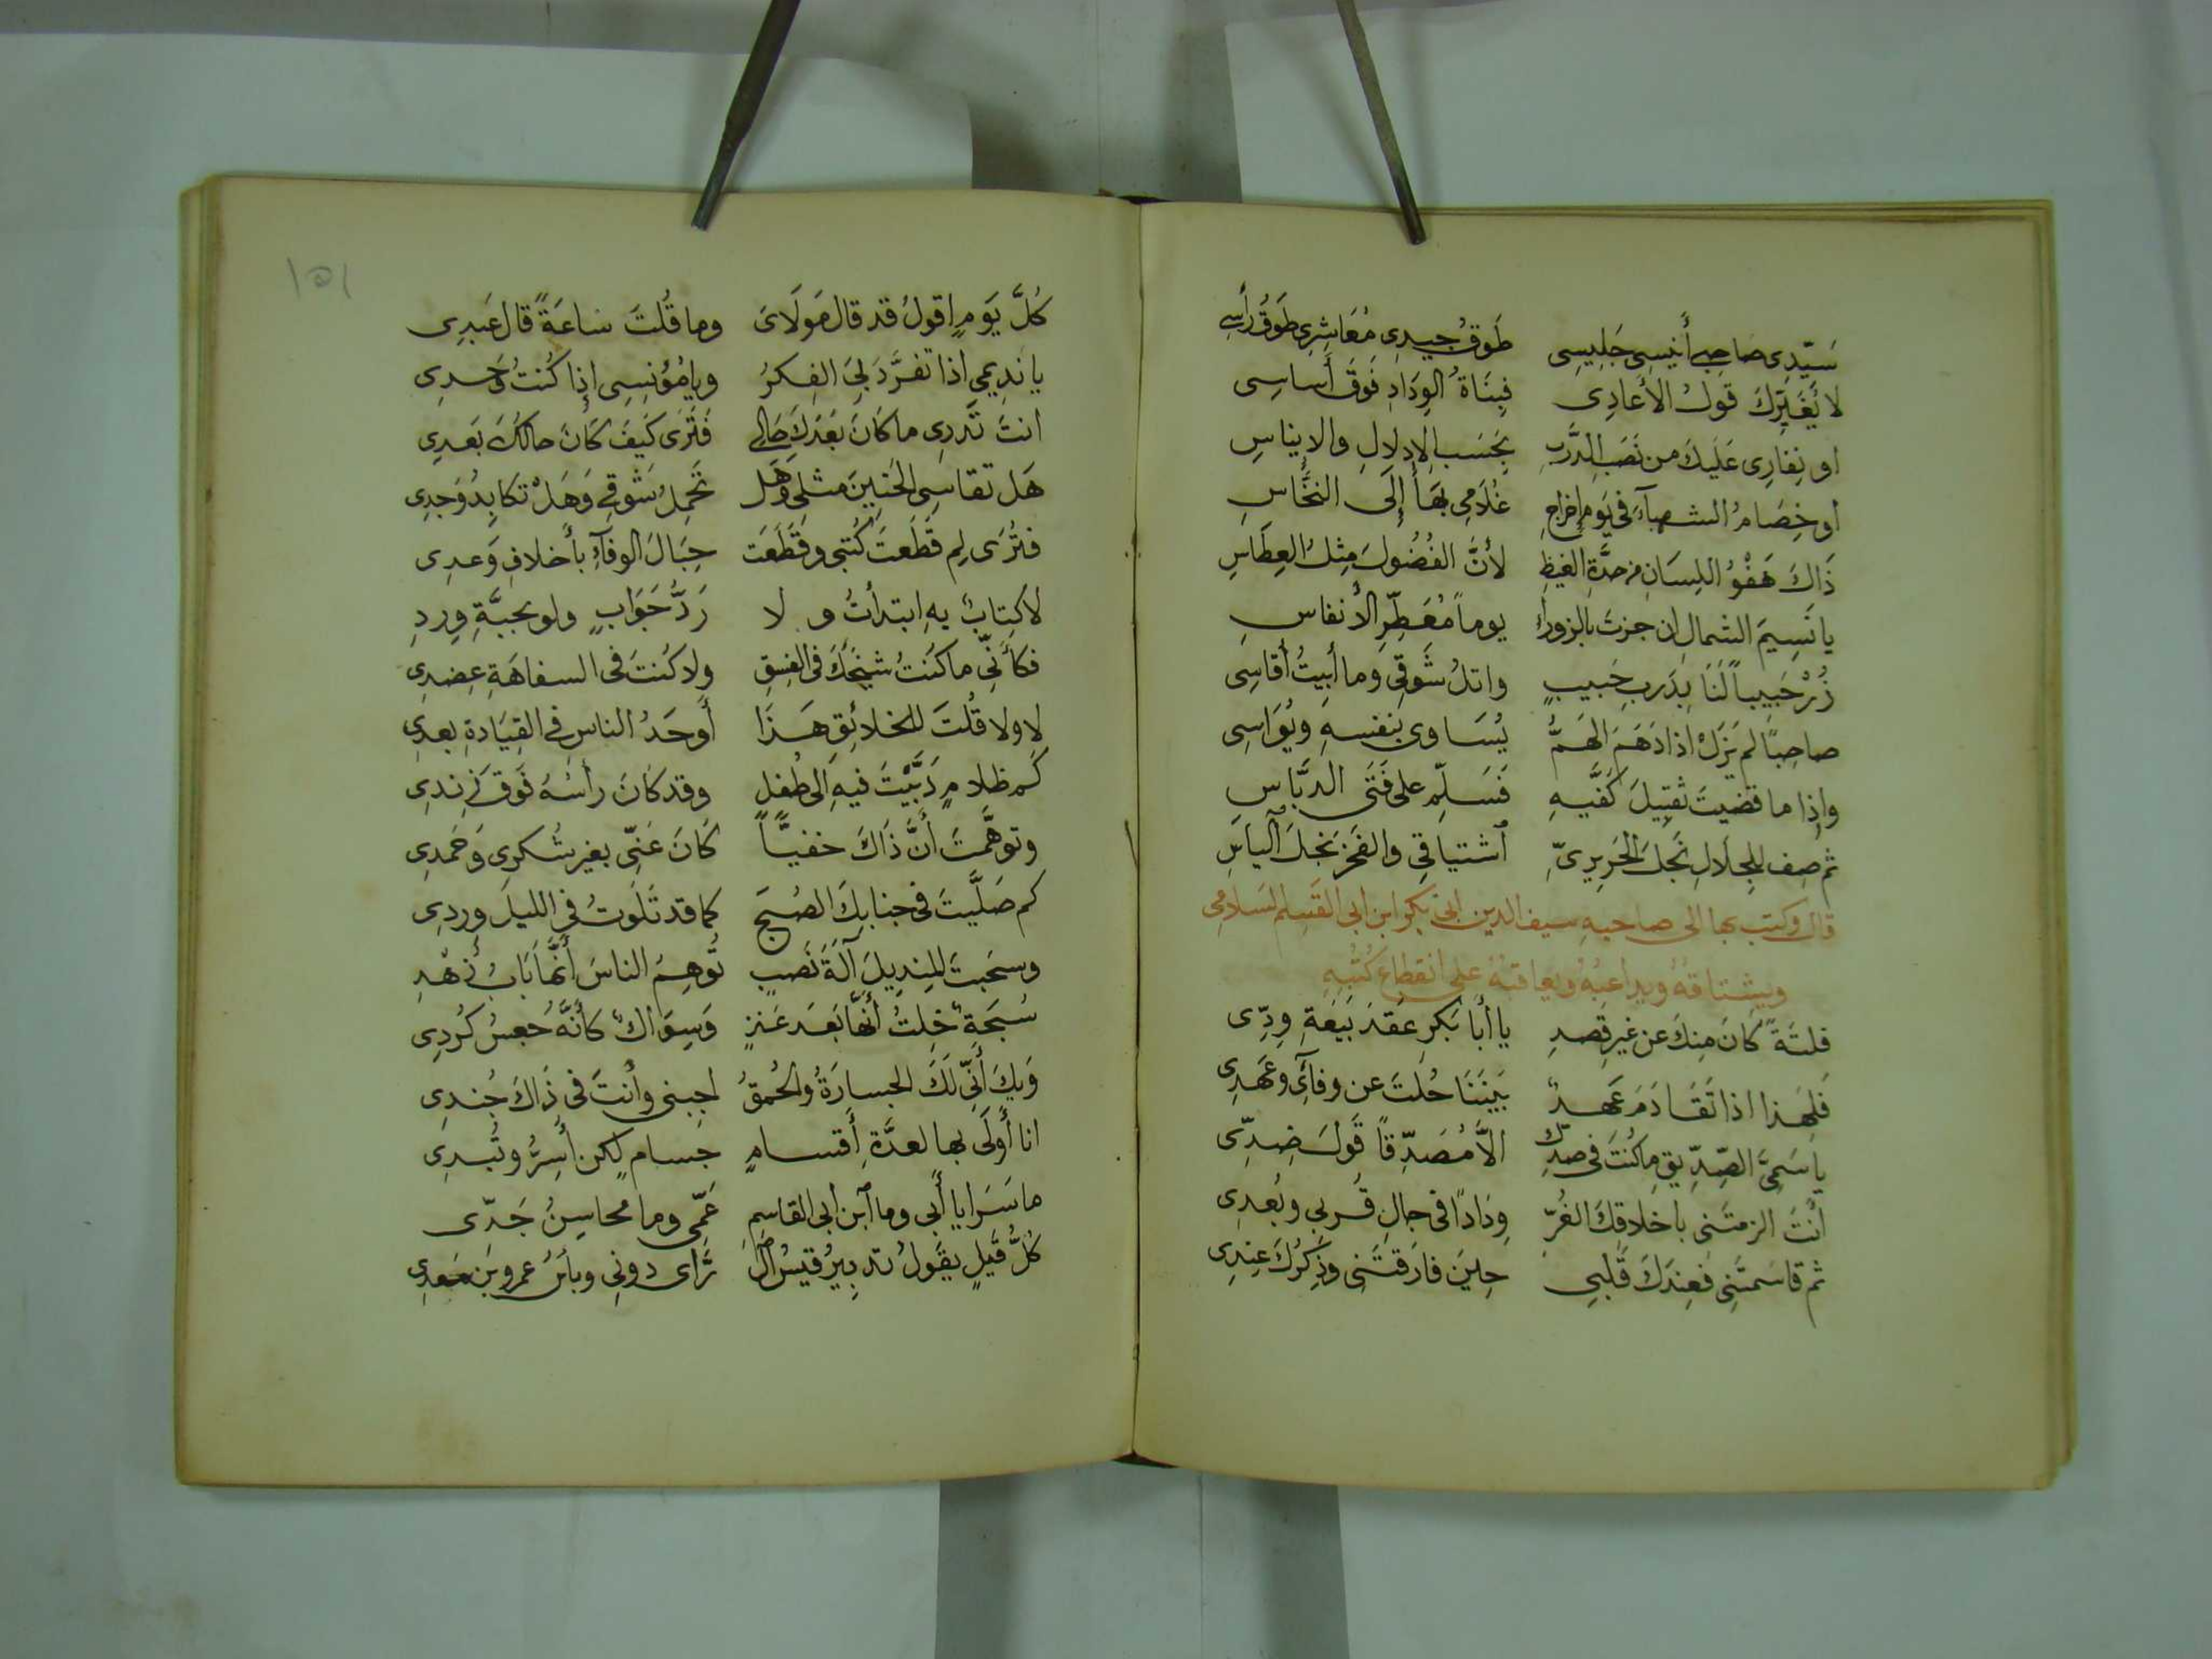 سَيِّدِى صَاحِبى أَنيسِى جَلِيسِى طَوقُ جيدِى مُعَاشِرِى طَوقُ رَأسِى
لا يُغَيِّرْكَ قَولُ الأَعَادِى فبِنَاةُ الوِدَادِ فَوقَ أَساسِى
او نِفارِى عَلَيكَ من نَصَبِ الدَّربِ بحَسَبِ الإدلالِ والايناسِ
أو خِصَامُ الشهباءِ فى يَومِ إخراجِ غُلَامِى بهَا إلَى النخَّاسِ
ذَاكَ هَفْوُ اللِسَانِ من حدَّةِ الغيظِ لأنَّ الفُضُولَ مِثلُ العِطَاسِ
يا نَسِيمَ الشمالِ ان جزتَ بالزوراءِ يوماً مُعَطِّرِ الأنفاسِ
زُرْ حَبيباً لَنَا بِدَربِ حَبيبٍ واتلُ شَوقِى وما أَبيتُ أُقَاسِى
صاحِباً لم يَزَلْ اذا دَهَمَ الهَمُّ يُسَاوى بنفسهِ ويُوَاسِى
وإذا ما قضيتَ تقبِيلَ كَفَّيهِ فَسَلِّم على فَتَى الدبَّاسِ
ثم صِف للجلَالِ نَجلَ الحَرِيرِىّ اشتياقِى والفخرِ نَجلَ آلياسِ
قال وكتب بها الى صاحبهِ سيف الدين ابى بكر ابن ابى القسم السلامى
ويشتاقهُ ويداعبُهُ ويعاقبهُ على انقطاعِ كُتُبِهِ
فلتَةً كانَ مِنكَ عن غيرِ قصدِ يا أَبَا بَكرِ عقدُ بَيَعةِ وِدِّى
فلِهَذا اذا تَقَادَمَ عَهدٌ بَينَنَا حُلتَ عن وفآئِى وعَهدِى
يا سَمِىَّ الصِّدِّيقِ ما كُنتَ فى صدِّك الَّا مُصَدِّقاً قَولَ ضِدِّى
أَنتَ الزمتَنى باخلاقِكَ الغُرِّ وِدَاداً فى حالِ قُربى وبُعدِى
ثم قاسمتَنِى فعِندَكَ قَلبى حِينَ فارَقتَنِى وذِكرُكَ عِندِى
١٥١
كُلَّ يَومٍ اقولُ قد قالَ مَولَاىَ وما قُلتَ سَاعَةً قال عَبدِى
يا نَدِيمى اذا تفرَّدَ بىَ الفِكرُ ويا مُؤنِسِى إذا كُنتُ وَحدِى
انتَ تَدرِى ما كانَ بَعْدَكَ حَالى فَتَرَى كَيفَ كانَ حالكَ بَعدِى
هَل تقاسِى الحَنينَ مثلِى وَهَل تحَمِلُ شَوقِى وَهَلْ تكابِدُ وَجدِى
فتُرَى لِم قَطَعتَ كُتبى وقَطَّعتَ حِبَالَ الوفآءِ بأَخلافِ وَعدِى
لا كِتابٌ بهِ ابتدأتُ و لا رَدُّ جَوَابٍ ولو بحبَّةِ وِردِ
فكأَنِّى ما كنتُ شيخَكَ فى الفِسقِ ولا كُنتَ فى السفاهَةِ عِضدِى
لا ولا قُلتَ للخلائِقِ هَذَا أَوحَدُ الناسِ فى القِيَادةِ بعدِى
كم ظلامٍ دَبَّيْتَ فيهِ الى طُفلٍ وقد كانَ رأسُهُ فَوقَ زِندِى
وتوهَّمتَ أنَّ ذَاكَ خفيّاً كَانَ عَنّى بغيرِ شُكرِى وَحَمدِى
كم صَلَّيتَ فى جنابِكَ الصُبحَ كما قد تَلَوتُ فى الليلِ وِردِى
وسحَبتَ المِنديلَ آلَةَ نَصبٍ تُوهِمُ الناسَ أنَّها بَابُ زُهْدِ
سُبحَةٍ خِلتُ أنَّها بَعَد عَنزٍ وَسِوَاكٌ كأنَّهُ جُعسُ كُردِى
وَيكَ أنَّى لَكَ الجسارَةُ والحُمقُ اجبنى وأنتَ فى ذَاكَ جُندِى
انا أَولَى بها لعدَّةِ أقسامٍ جسامٍ لكن أُسِرُّ وتُبدِى
ما سَرَايا أَبى وما ابن ابى القاسِمِ عَمِّى وما محاسِنُ جَدّى
كُلُّ قَيلٍ يقولُ تدبِيرُ قيسُ الرَّاى دونِى وبأسُ عمرو بن معدِى